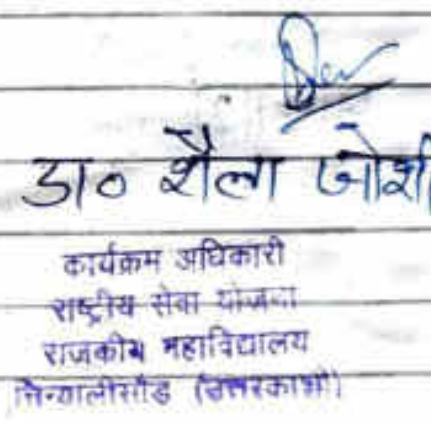 डा० शैला जोशी
कार्यक्रम अधिकारी
राष्ट्रीय सेवा योजना
राजकीय महाविद्यालय
चिन्यालीसौड (उत्तरकाशी)